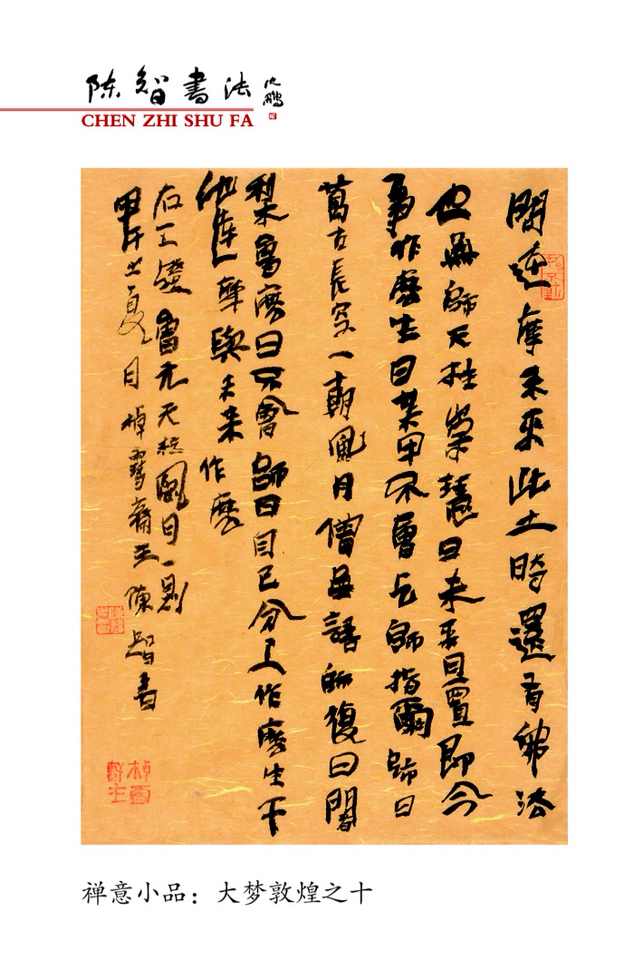 陈智書法
沈鹏
CHEN ZHI SHU FA
問達摩未來此土時還有佛法
也無師天柱崇慧曰未來且置即今
事作麼生曰某甲不會乞師指爾師曰
萬古長空一朝風月僧無語師復曰闍
梨會麼曰不會師曰自己分上作麼生干
他達摩與未來作麼
右五燈會元天柱風月一則
甲午之夏月齋主陳智書
禅意小品：大梦敦煌之十